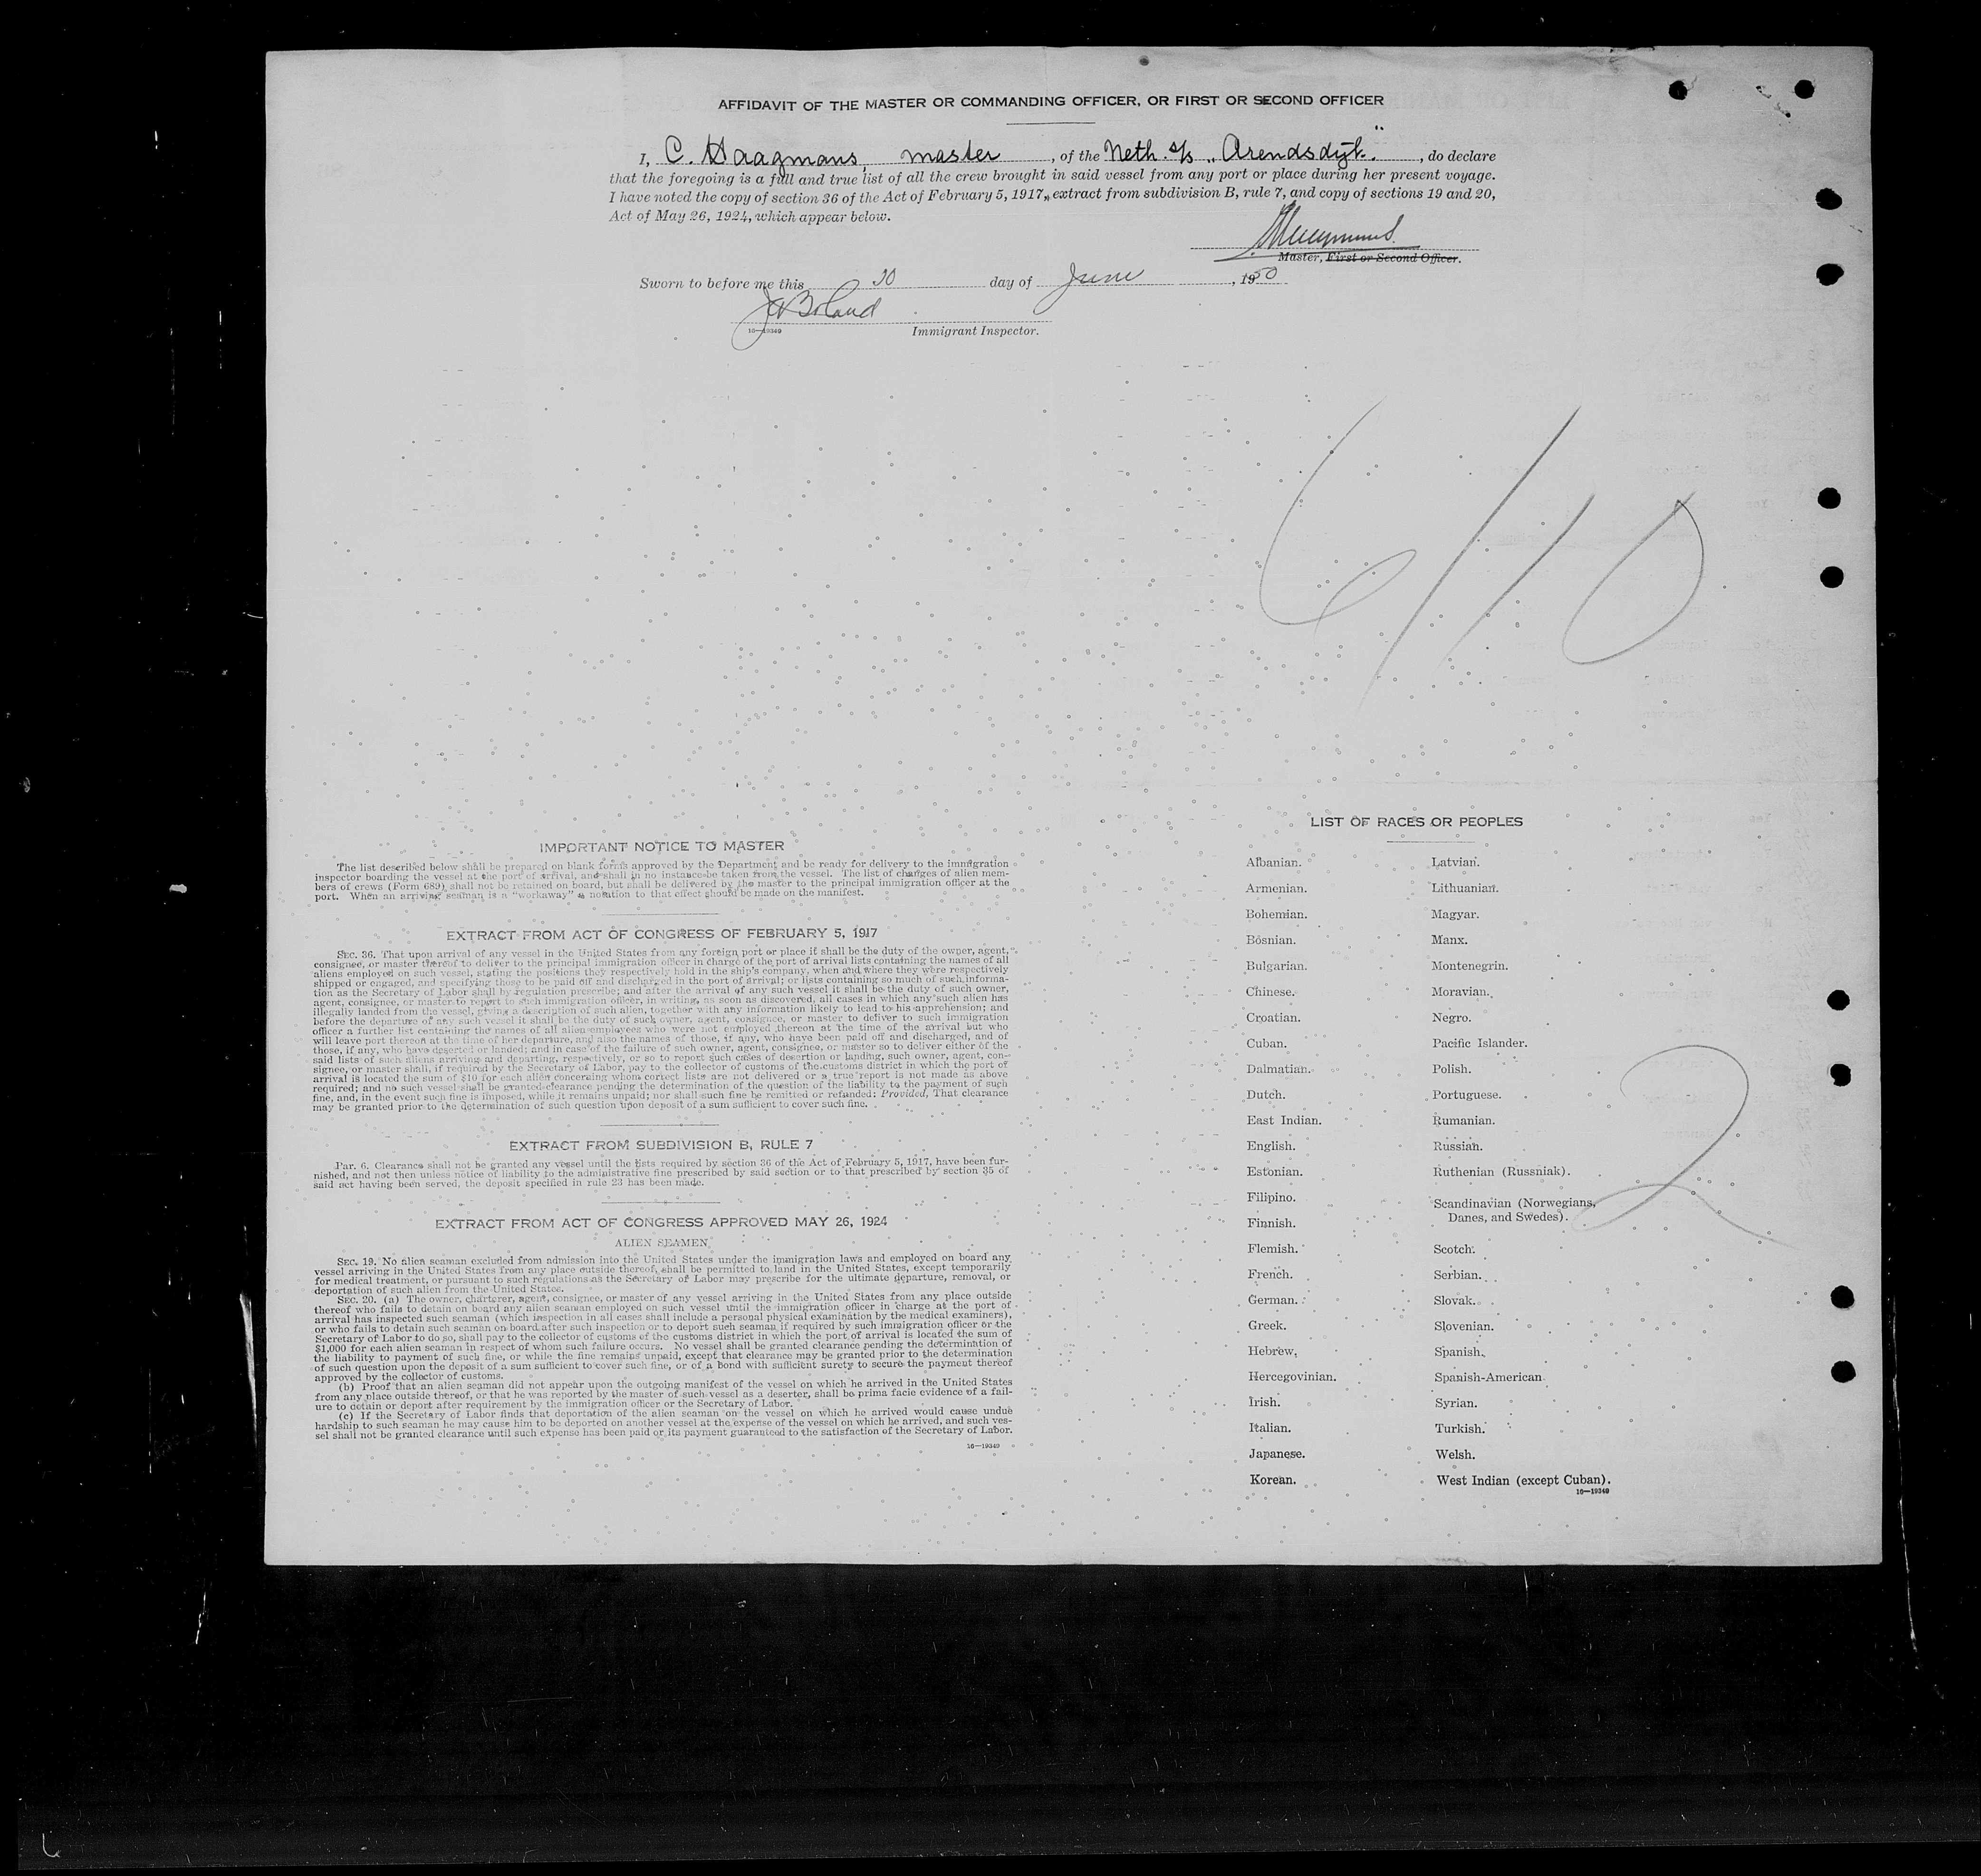 AFFIDAVIT OF THE MASTER OR COMMANDING OFFICER, OR FIRST OR SECOND OFFICER
I, C. Haagmans, master, of the Neth. s/s „Arendsdijk", do declare
that the foregoing is a full and true list of all the crew brought in said vessel from any port or place during her present voyage.
I have noted the copy of section 36 of the Act of February 5, 1917, extract from subdivision B, rule 7, and copy of sections 19 and 20,
Act of May 26, 1924, which appear below.
Master, First or Second Officer.
Sworn to before me this 20 day of June, 1950
J Boland
16—19349 Immigrant Inspector.
6/10
IMPORTANT NOTICE TO MASTER
The list described below shall be prepared on blank forms approved by the Department and be ready for delivery to the immigration
inspector boarding the vessel at the port of arrival, and shall in no instance be taken from the vessel. The list of changes of alien mem-
bers of crews (Form 689) shall not be retained on board, but shall be delivered by the master to the principal immigration officer at the
port. When an arriving seaman is a "workaway" a notation to that effect should be made on the manifest.
EXTRACT FROM ACT OF CONGRESS OF FEBRUARY 5, 1917
SEC. 36. That upon arrival of any vessel in the United States from any foreign port or place it shall be the duty of the owner, agent,
consignee, or master thereof to deliver to the principal immigration officer in charge of the port of arrival lists containing the names of all
aliens employed on such vessel, stating the positions they respectively hold in the ship's company, when and where they were respectively
shipped or engaged, and specifying those to be paid off and discharged in the port of arrival; or lists containing so much of such informa-
tion as the Secretary of Labor shall by regulation prescribe; and after the arrival of any such vessel it shall be the duty of such owner,
agent, consignee, or master to report to such immigration officer, in writing, as soon as discovered, all cases in which any such alien has
illegally landed from the vessel, giving a description of such alien, together with any information likely to lead to his apprehension; and
before the departure of any such vessel it shall be the duty of such owner, agent, consignee, or master to deliver to such immigration
officer a further list containing the names of all alien employees who were not employed thereon at the time of the arrival but who
will leave port thereon at the time of her departure, and also the names of those, if any, who have been paid off and discharged, and of
those, if any, who have deserted or landed; and in case of the failure of such owner, agent, consignee, or master so to deliver either of the
said lists of such aliens arriving and departing, respectively, or so to report such cases of desertion or landing, such owner, agent, con-
signee, or master shall, if required by the Secretary of Labor, pay to the collector of customs of the customs district in which the port of
arrival is located the sum of $10 for each alien concerning whom correct lists are not delivered or a true report is not made as above
required; and no such vessel shall be granted clearance pending the determination of the question of the liability to the payment of such
fine, and, in the event such fine is imposed, while it remains unpaid; nor shall such fine be remitted or refunded: Provided, That clearance
may be granted prior to the determination of such question upon deposit of a sum sufficient to cover such fine.
EXTRACT FROM SUBDIVISION B, RULE 7
Par. 6. Clearance shall not be granted any vessel until the lists required by section 36 of the Act of February 5, 1917, have been fur-
nished, and not then unless notice of liability to the administrative fine prescribed by said section or to that prescribed by section 35 of
said act having been served, the deposit specified in rule 23 has been made.
EXTRACT FROM ACT OF CONGRESS APPROVED MAY 26, 1924
ALIEN SEAMEN
SEC. 19. No alien seaman excluded from admission into the United States under the immigration laws and employed on board any
vessel arriving in the United States from any place outside thereof, shall be permitted to land in the United States, except temporarily
for medical treatment, or pursuant to such regulations as the Secretary of Labor may prescribe for the ultimate departure, removal, or
deportation of such alien from the United States.
SEC. 20. (a) The owner, charterer, agent, consignee, or master of any vessel arriving in the United States from any place outside
thereof who fails to detain on board any alien seaman employed on such vessel until the immigration officer in charge at the port of
arrival has inspected such seaman (which inspection in all cases shall include a personal physical examination by the medical examiners),
or who fails to detain such seaman on board after such inspection or to deport such seaman if required by such immigration officer or the
Secretary of Labor to do so, shall pay to the collector of customs of the customs district in which the port of arrival is located the sum of
$1,000 for each alien seaman in respect of whom such failure occurs. No vessel shall be granted clearance pending the determination of
the liability to payment of such fine, or while the fine remains unpaid, except that clearance may be granted prior to the determination
of such question upon the deposit of a sum sufficient to cover such fine, or of a bond with sufficient surety to secure the payment thereof
approved by the collector of customs.
(b) Proof that an alien seaman did not appear upon the outgoing manifest of the vessel on which he arrived in the United States
from any place outside thereof, or that he was reported by the master of such vessel as a deserter, shall be prima facie evidence of a fail-
ure to detain or deport after requirement by the immigration officer or the Secretary of Labor.
(c) If the Secretary of Labor finds that deportation of the alien seaman on the vessel on which he arrived would cause undue
hardship to such seaman he may cause him to be deported on another vessel at the expense of the vessel on which he arrived, and such ves-
sel shall not be granted clearance until such expense has been paid or its payment guaranteed to the satisfaction of the Secretary of Labor.
16—19349
LIST OF RACES OR PEOPLES
Albanian.
Armenian.
Bohemian.
Bosnian.
Bulgarian.
Chinese.
Croatian.
Cuban.
Dalmatian.
Dutch.
East Indian.
English.
Estonian.
Filipino.
Finnish.
Flemish.
French.
German.
Greek.
Hebrew.
Hercegovinian.
Irish.
Italian.
Japanese.
Korean.
Latvian.
Lithuanian.
Magyar.
Manx.
Montenegrin.
Moravian.
Negro.
Pacific Islander.
Polish.
Portuguese.
Rumanian.
Russian.
Ruthenian (Russniak).
Scandinavian (Norwegians,
Danes, and Swedes).
Scotch.
Serbian.
Slovak.
Slovenian.
Spanish.
Spanish-American
Syrian.
Turkish.
Welsh.
West Indian (except Cuban).
16—19349
2